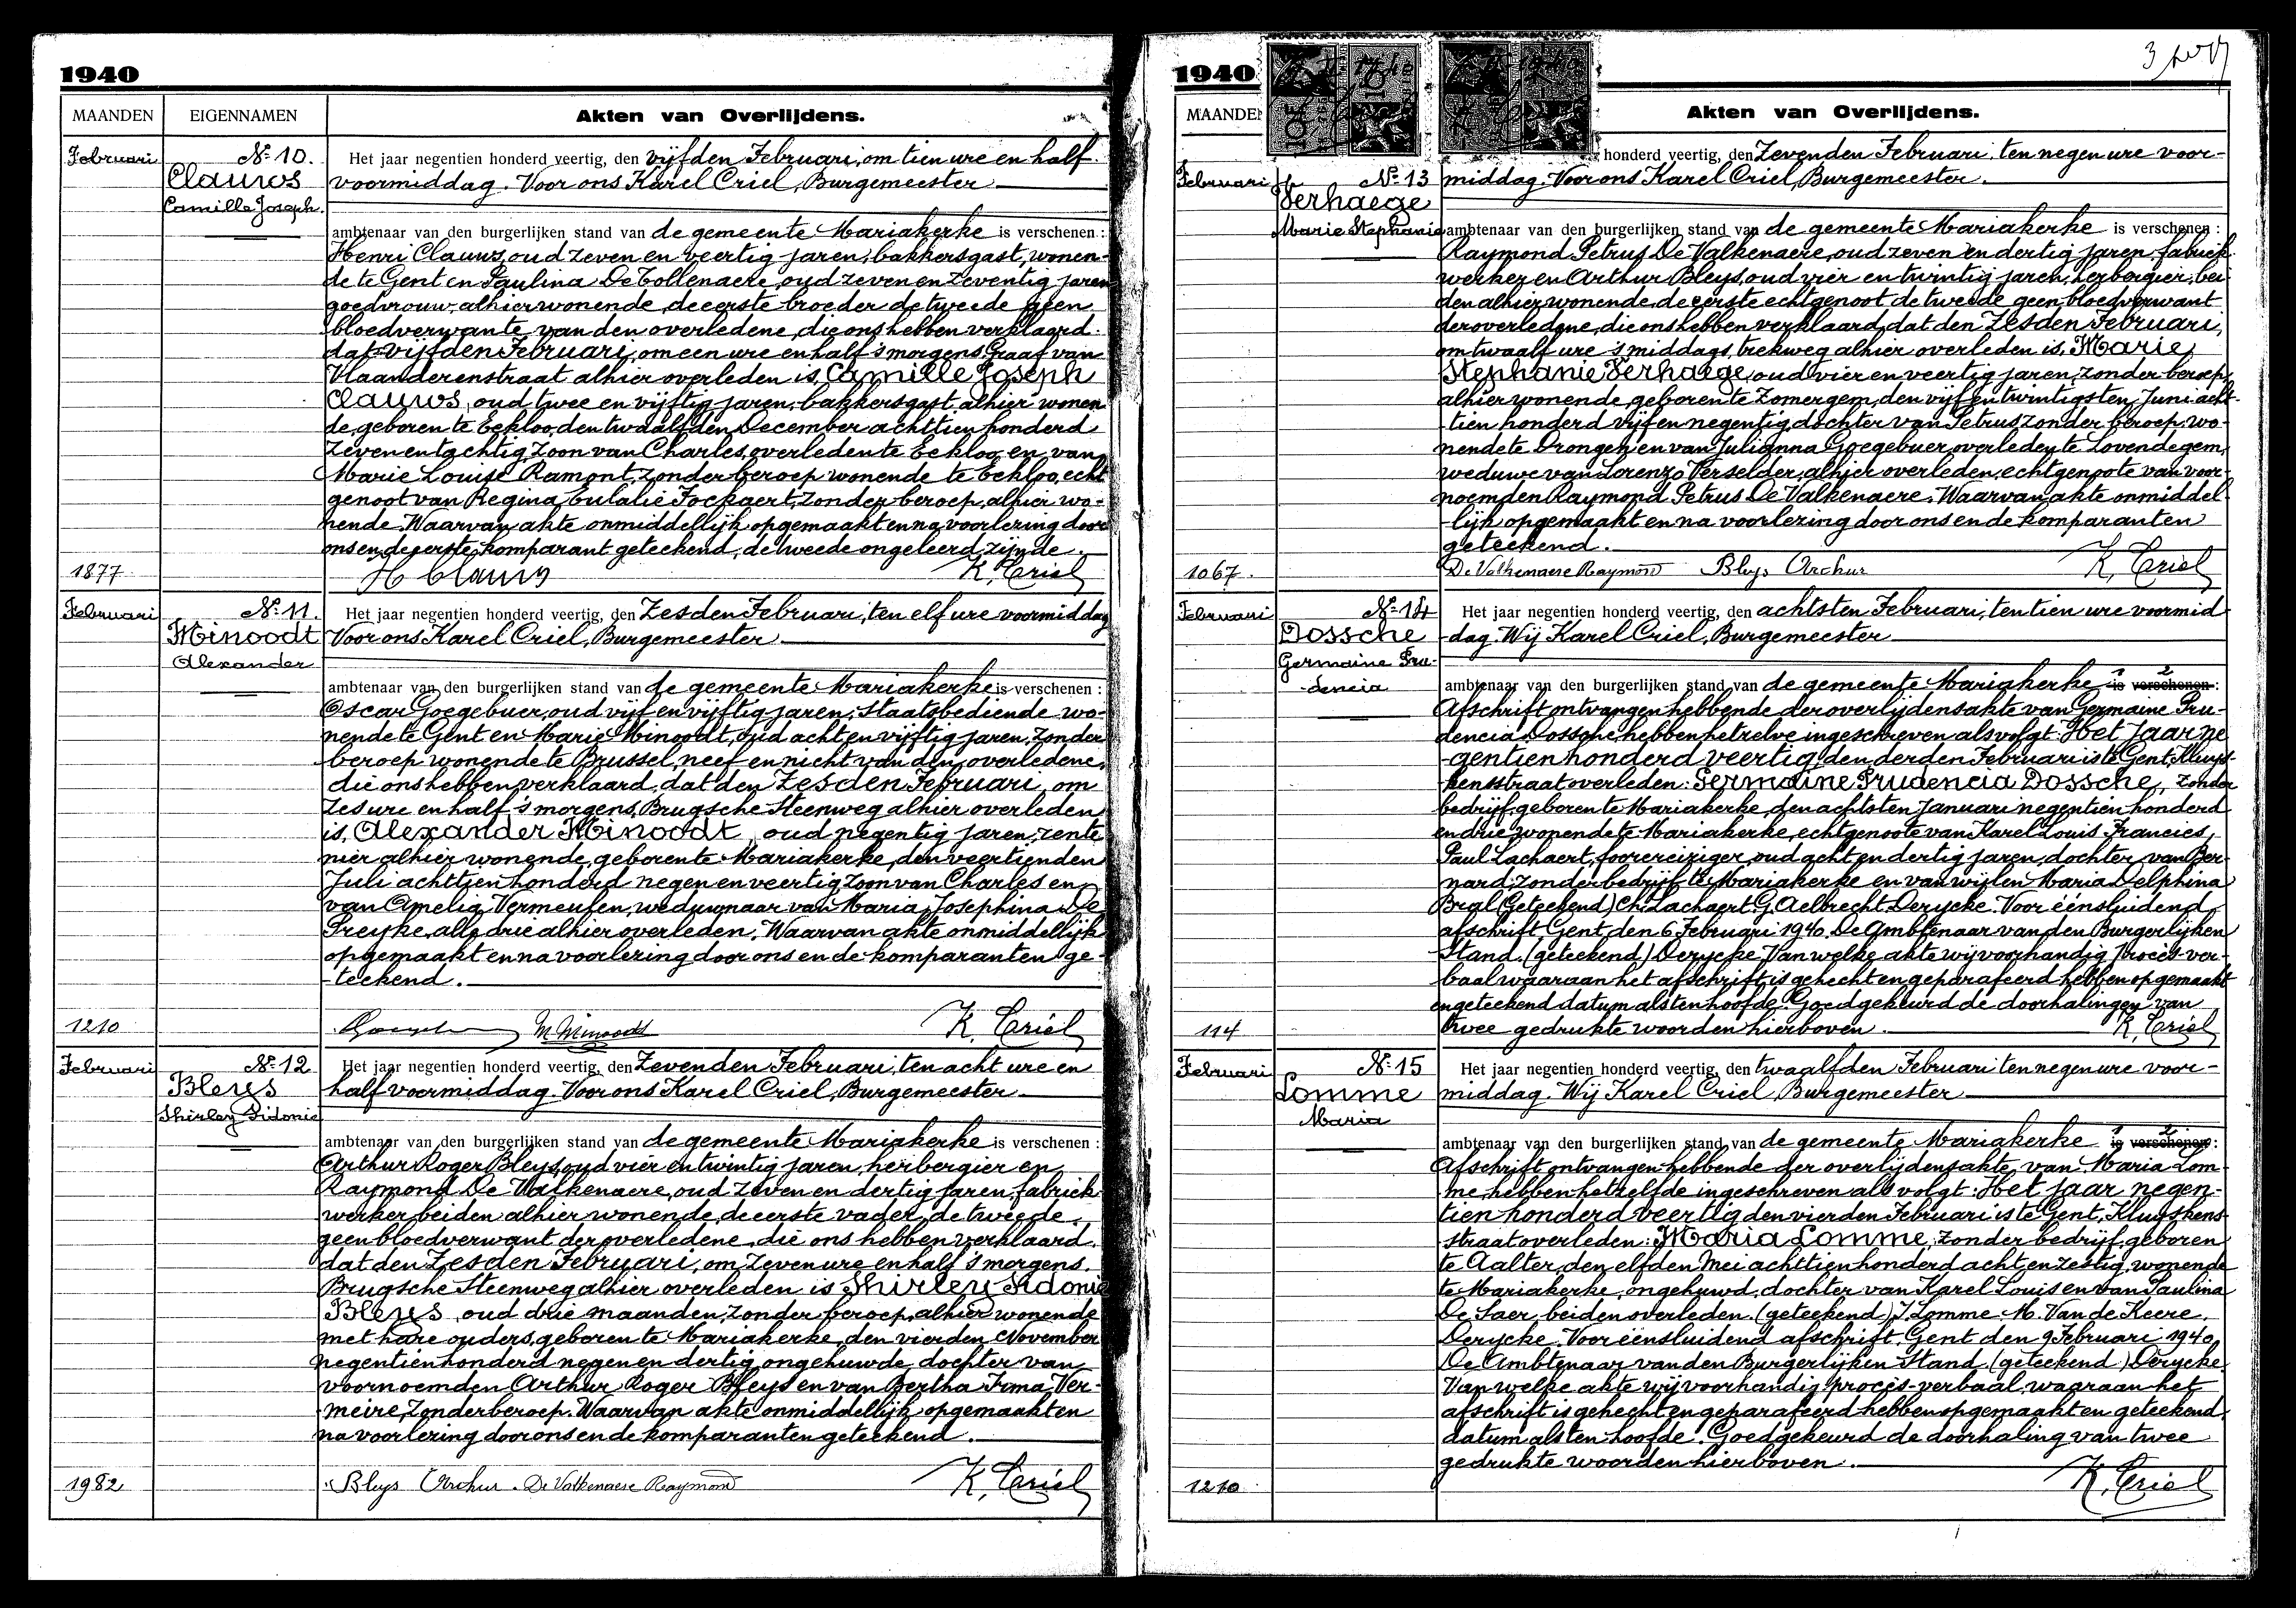 1940
MAANDEN
EIGENNAMEN
Akten van Overlijdens.
Februari
Nº 10.
Clauws
Camille Joseph.
Het jaar negentien honderd veertig, den vijfden Februari, om tien ure en half
voormiddag. Voor ons Karel Criel, Burgemeester
ambtenaar van den burgerlijken stand van de gemeente Mariakerke is verschenen :
Henri Clauws, oud zeven en veertig jaren, bakkersgast, wonen-
de te Gent en Paulina De Tollenaere, oud zeven en zeventig jaren
goedvrouw, alhier wonende, de eerste broeder de tweede geen
bloedverwante van den overledene, die ons hebben verklaard
dat vijfden Februari, om een ure en half 's morgens, Graaf van
Vlaanderenstraat alhier overleden is, Camille Joseph
Clauws, oud twee en vijftig jaren, bakkersgast alhier wonen
de, geboren te Eekloo, den twaalfden December achttien honderd
zeven en tachtig, zoon van Charles, overleden te Eekloo en van
Marie Louise Ramont, zonder beroep wonende te Eekloo, echt
genoot van Regina Eulalie Fockaert, zonder beroep, alhier wo-
nende. Waarvan akte onmiddellijk opgemaakt en na voorlezing door
ons en de eerste komparant geteekend, de tweede ongeleerd zijnde.
1877
H Clauws
K. Criel
Februari
Nº 11.
Minoodt
Alexander
Het jaar negentien honderd veertig, den Zesden Februari, ten elf ure voormiddag
Voor ons Karel Criel, Burgemeester
ambtenaar van den burgerlijken stand van de gemeente Mariakerke is verschenen :
Oscar Goegebuer, oud vijf en vijftig jaren, staatsbediende wo-
nende te Gent en Marie Minoodt, oud acht en vijftig jaren, zonder
beroep wonende te Brussel, neef en nicht van den overledene,
die ons hebben verklaard, dat den Zesden Februari, om
zes ure en half 's morgens, Brugsche Steenweg alhier overleden
is, Alexander Minoodt, oud negentig jaren, rente
nier alhier wonende, geboren te Mariakerke, den veertienden
Juli achttien honderd negen en veertig, zoon van Charles en
van Amelia Vermeulen, weduwnaar van Maria Josephina De
Preijke, alle drie alhier overleden. Waarvan akte onmiddellijk
opgemaakt en na voorlezing door ons en de komparanten ge-
teekend.
1210
M. Minoodt
K. Criel
Februari
Nº 12
Bleys
Shirley Sidonie
Het jaar negentien honderd veertig, den Zevenden Februari, ten acht ure en
half voormiddag. Voor ons Karel Criel, Burgemeester
ambtenaar van den burgerlijken stand van de gemeente Mariakerke is verschenen :
Arthur Roger Bleys, oud vier en twintig jaren, herbergier en
Raymond De Valkenaere, oud zeven en dertig jaren, fabriek
werker beiden alhier wonende, de eerste vader, de tweede
geen bloedverwant der overledene, die ons hebben verklaard,
dat den Zesden Februari, om zeven ure en half 's morgens,
Brugsche Steenweg alhier overleden is Shirley Sidonie
Bleys, oud drie maanden, zonder beroep, alhier wonende
met hare ouders, geboren te Mariakerke, den vierden November
negentien honderd negen en dertig, ongehuwde dochter van
voornoemden Arthur Roger Bleys en van Bertha Irma Ver-
meire, zonder beroep. Waarvan akte onmiddellijk opgemaakt en
na voorlezing door ons en de komparanten geteekend.
1982
Bleys Arthur. De Valkenaere Raymond
K. Criel
1940
MAANDE
Akten van Overlijdens.
Februari
Nº 13
Verhaege
Marie Stephanie
honderd veertig, den Zevenden Februari, ten negen ure voor-
middag. Voor ons Karel Criel, Burgemeester.
ambtenaar van den burgerlijken stand van de gemeente Mariakerke is verschenen :
Raymond Petrus De Valkenaere, oud zeven en dertig jaren, fabriek
werker en Arthur Bleys, oud vier en twintig jaren, herbergier, bei
den alhier wonende, de eerste echtgenoot de tweede geen bloedverwant
der overledene, die ons hebben verklaard, dat den Zesden Februari,
om twaalf ure 's middags, trekweg alhier overleden is, Marie
Stephanie Verhaege, oud vier en veertig jaren, zonder beroep,
alhier wonende, geboren te Zomergem, den vijf en twintigsten Juni acht-
tien honderd vijf en negentig, dochter van Petrus zonder beroep, wo-
nende te Drongen en van Julianna Goegebuer, overleden te Lovendegem,
weduwe van Lorenzo Verselder, alhier overleden, echtgenoote van voor-
noemden Raymond Petrus De Valkenaere. Waarvan akte onmiddel
lijk opgemaakt en na voorlezing door ons en de komparanten
geteekend.
1067.
De Valkenaere Raymond Bleys Arthur
K. Criel
Februari
Nº 14
Dossche
Germaine Pru-
dencia
Het jaar negentien honderd veertig, den achtsten Februari, ten tien ure voormid
dag. Wij Karel Criel, Burgemeester
ambtenaar van den burgerlijken stand van de gemeente Mariakerke is verschenen :
Afschrift ontvangen hebbende der overlijdensakte van Germaine Pru-
dencia Dossche, hebben hetzelve ingeschreven als volgt: Het Jaar ne
gentien honderd veertig, den derden Februari is te Gent, Kluys-
kensstraat overleden: Germaine Prudencia Dossche, zonder
bedrijf, geboren te Mariakerke, den achtsten Januari negentien honderd
en drie, wonende te Mariakerke, echtgenoote van Karel Louis Francies,
Paul Lachaert, foorreiziger, oud acht en dertig jaren, dochter van Ber-
nard, zonder bedrijf te Mariakerke en van wijlen Maria Delphina
Bral (geteekend) Ch. Lachaert. G. Aelbrecht. Derycke. Voor éénsluidend
afschrift Gent, den 6 Februari 1940. De Ambtenaar van den Burgerlijken
Stand. (geteekend) Derycke. Van welke akte wij voorhandig procès-ver-
baal waaraan het afschrift is gehecht en geparafeerd hebben opgemaakt
en geteekend datum als ten hoofde. Goedgekeurd de doorhalingen van
twee gedrukte woorden hierboven.
114
K. Criel
Februari
Nº 15
Lomme
Maria
Het jaar negentien honderd veertig, den twaalfden Februari ten negen ure voor-
middag. Wij Karel Criel, Burgemeester
ambtenaar van den burgerlijken stand van de gemeente Mariakerke is verschenen :
Afschrift ontvangen hebbende der overlijdensakte van Maria Lom-
me, hebben hetzelfde ingeschreven als volgt: Het jaar negen-
tien honderd veertig den vierden Februari is te Gent, Kluyskens-
straat overleden: Maria Lomme, zonder bedrijf, geboren
te Aalter, den elfden Mei achttien honderd acht en zestig, wonende
te Mariakerke, ongehuwd, dochter van Karel Louis en van Paulina
De Saer, beiden overleden. (geteekend) J. Lomme. M. Van de Keere.
Derycke. Voor eensluidend afschrift. Gent den 9 Februari 1940
De Ambtenaar van den Burgerlijken Stand. (geteekend) Derycke.
Van welke akte wij voorhandig procès-verbaal, waaraan het
afschrift is gehecht en geparafeerd hebben opgemaakt en geteekend,
datum als ten hoofde. Goedgekeurd de doorhaling van twee
gedrukte woorden hierboven.
1210
K. Criel